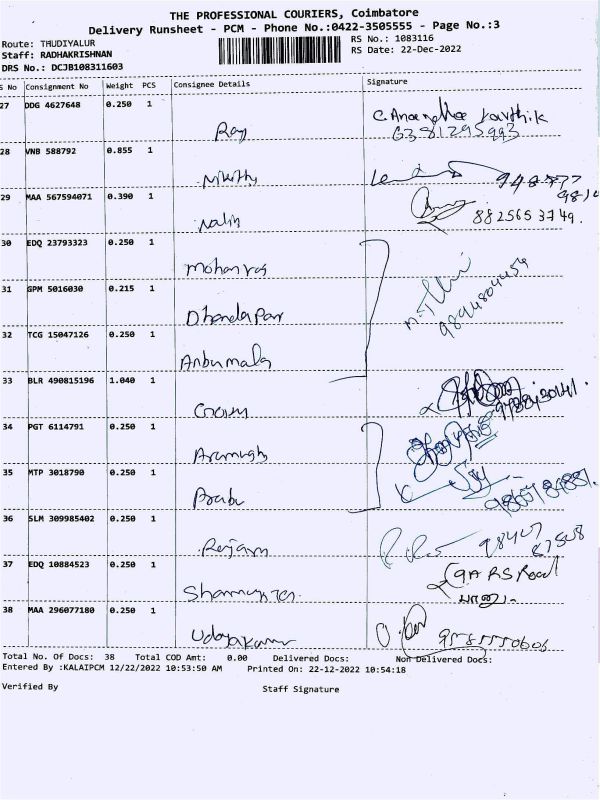 THE PROFESSIONAL COURIERS, Coimbatore
Delivery Runsheet - PCM - Phone No.:0422-3505555 - Page No.:3
Route: THUDIYALUR
RS No.: 1083116
Staff: RADHAKRISHNAN
RS Date: 22-Dec-2022
DRS No.: DCJB108311603
S No Consignment No Weight PCS Consignee Details Signature
27 DDG 4627648 0.250 1 Ray Karthik
6381295993
28 VNB 588792 0.855 1
29 MAA 567594071 0.390 1 Nalin 8825653749.
30 EDQ 23793323 0.250 1 Mohanraj
31 GPM 5016030 0.215 1 Dhandapani 9894804459
32 TCG 15047126 0.250 1 Anbumalar
33 BLR 490815196 1.040 1
34 PGT 6114791 0.250 1
35 MTP 3018790 0.250 1 Prabu
36 SLM 309985402 0.250 1 Rajam
37 EDQ 10884523 0.250 1 9A RS Road
38 MAA 296077180 0.250 1 Udayakumar
Total No. Of Docs: 38 Total COD Amt: 0.00 Delivered Docs: Non Delivered Docs:
Entered By :KALAIPCM 12/22/2022 10:53:50 AM Printed On: 22-12-2022 10:54:18
Verified By Staff Signature